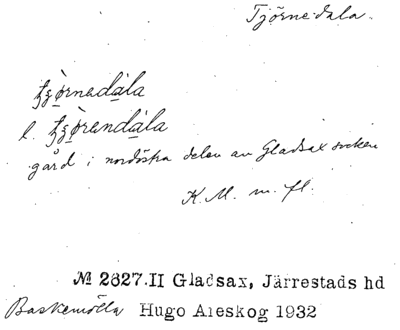 Tjörnedala.
tʂø̀rnadála
l. tʂø̀randála
gård i nordöstra delen av Gladsax socken
K. M. m. fl.
№ 2827.II Gladsax, Järrestads hd
Baskemölla Hugo Areskog 1932